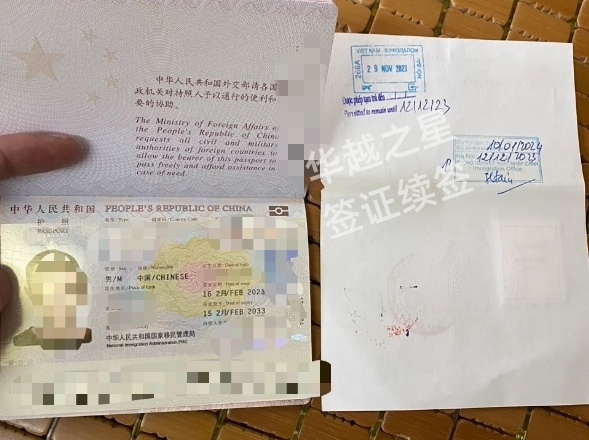 中华人民共和国外交部请各国
政机关对持照人予以通行的便利和
要的协助。
The Ministry of Foreign Affairs of
the People's Republic of China
requests all civil and military
authorities of foreign countries to
allow the bearer of this passport to
pass freely and afford assistance in
case of need.
中华人民共和国 PEOPLE'S REPUBLIC OF CHINA
护 照
PASSPORT
类型/Type
国家码/Country Code
男/M 中国/CHINESE
出生地点/Place of birth
16 2月/FEB 2023
15 2月/FEB 2033
中华人民共和国国家移民管理局
National Immigration Administration,PRC
VIET NAM - IMMIGRATION
266A
29 NOV 2023
Được phép tạm trú đến
Permitted to remain until 12/12/23
10/01/2024
12/12/2023
华越之星
签证续签